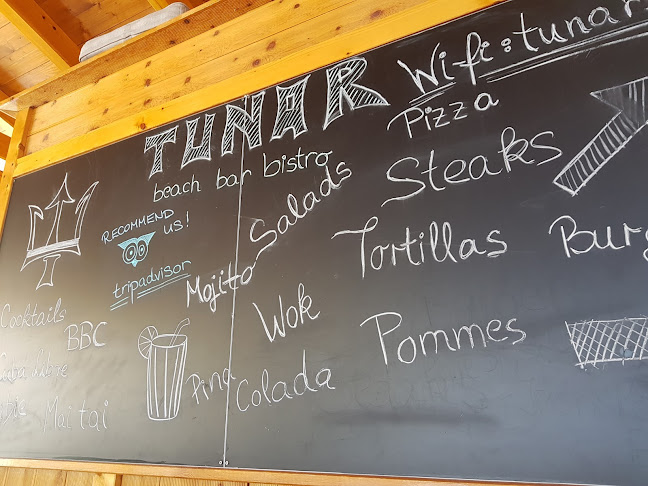 TUNAR
beach bar bistro
Wi-fi: tunar
Pizza
RECOMMEND
US!
tripadvisor
Salads
Steaks
Mojito
Tortillas
Burg
Cocktails
BBC
Wok
Pommes
Cuba Libre
Pina
Colada
Mai tai